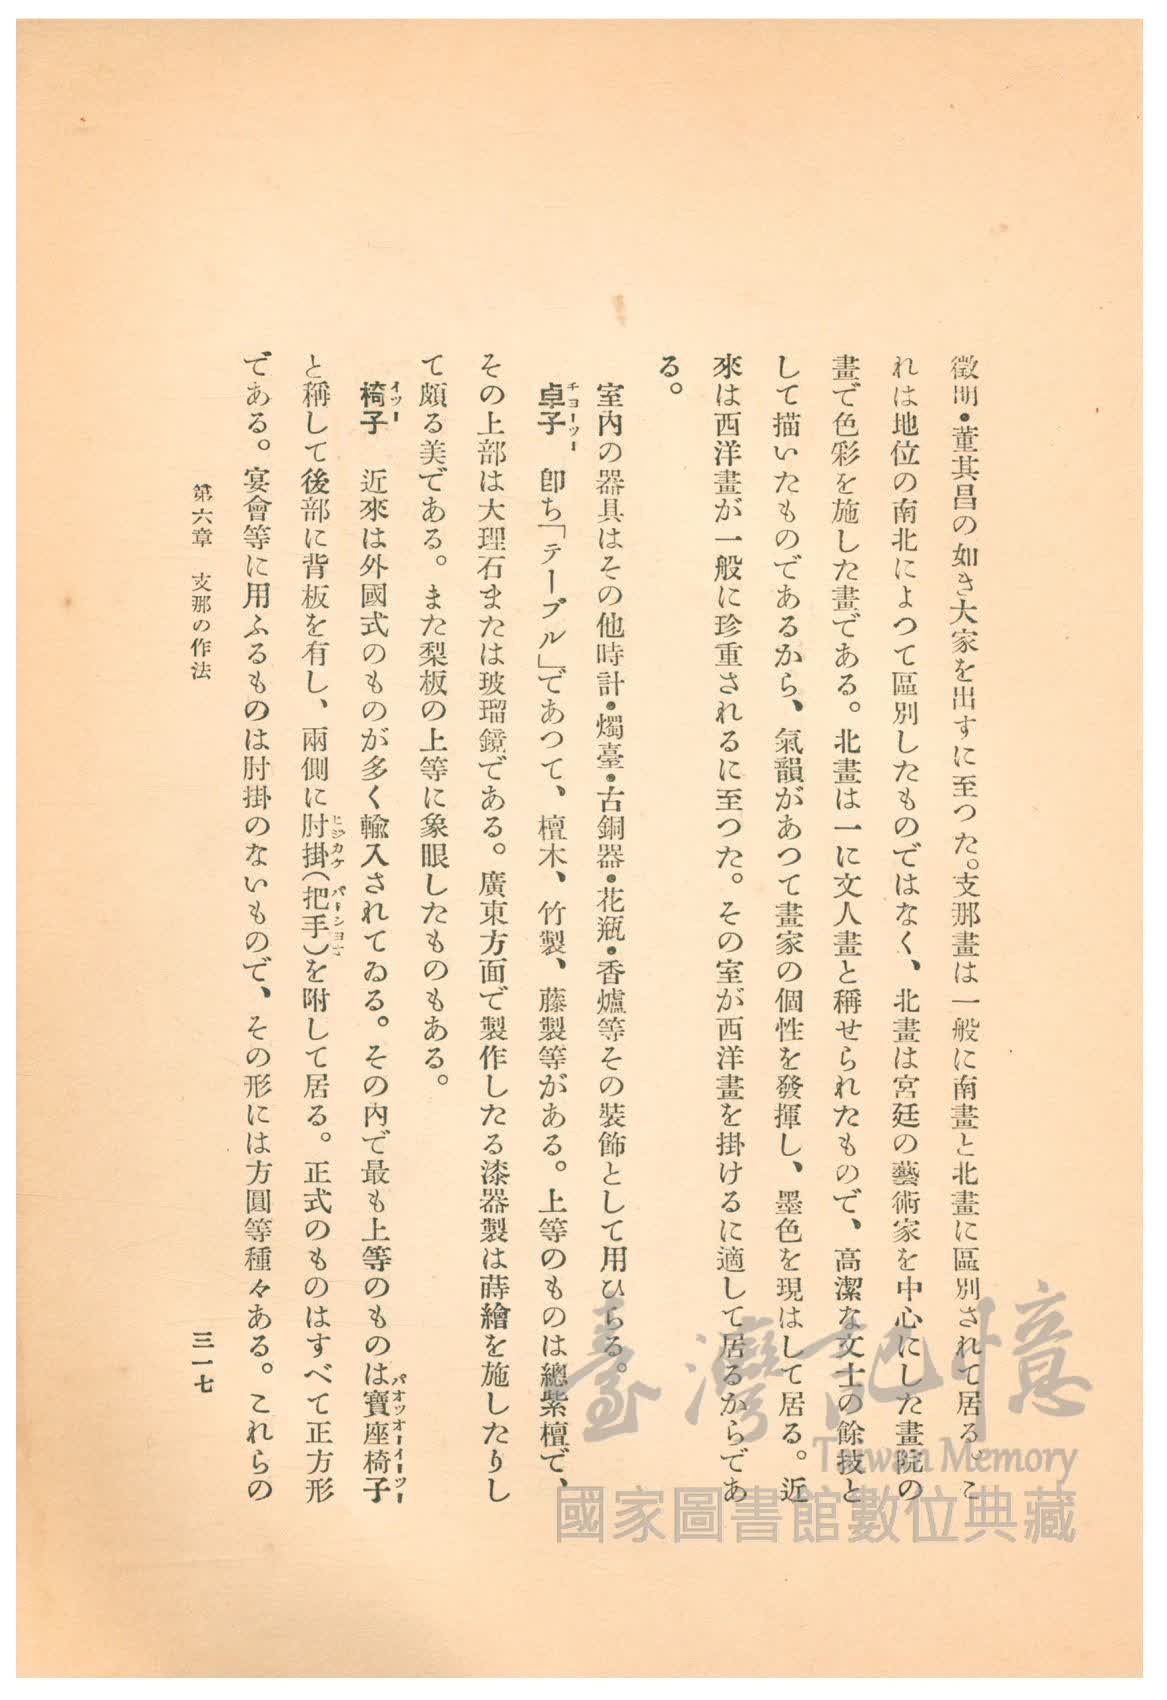 徵明・董其昌の如き大家を出すに至つた。支那畫は一般に南畫と北畫に區別されて居る。こ
れは地位の南北によつて區別したものではなく、北畫は宮廷の藝術家を中心にした畫院の
畫で色彩を施した畫である。北畫は一に文人畫と稱せられたもので、高潔な文士の餘技と
して描いたものであるから、氣韻があつて畫家の個性を發揮し、墨色を現はして居る。近
來は西洋畫が一般に珍重されるに至つた。その室が西洋畫を掛けるに適して居るからであ
る。
室内の器具はその他時計・燭臺・古銅器・花瓶・香爐等その裝飾として用ひらる。
卓子 チヨーツー 卽ち「テーブル」であつて、檀木、竹製、藤製等がある。上等のものは總紫檀で、
その上部は大理石または玻瑠鏡である。廣東方面で製作したる漆器製は蒔繪を施したりし
て頗る美である。また梨板の上等に象眼したものもある。
椅子 イツー 近來は外國式のものが多く輸入されてゐる。その内で最も上等のものは寶座椅子 パオツオーイーツー
と稱して後部に背板を有し、兩側に肘掛 ヒジカケ（把手）を附して居る。正式のものはすべて正方形
である。宴會等に用ふるものは肘掛のないもので、その形には方圓等種々ある。これらの
第六章 支那の作法
三一七
臺灣記憶
Taiwan Memory
國家圖書館數位典藏